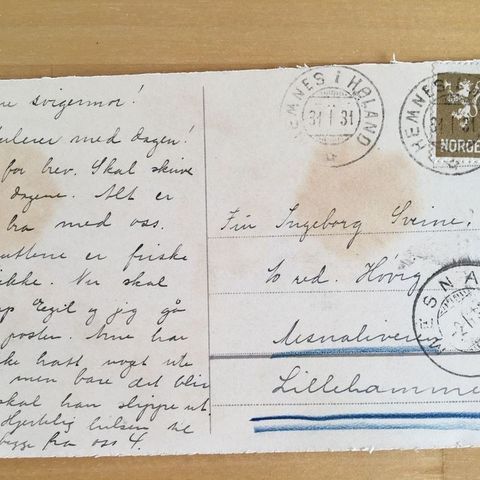 re svigermor!
ulerer med dagen!
for brev. Skal skrive
dagene. Alt er
bra med oss.
uttene er friske
ikke. Nu skal
Egil og jeg gå
posten. Arne har
ke hatt noget ute
men bare det blir
skal han slippe ut.
Hjertelig hilsen
fra oss 4.
HEMNES I HØLAND
31 1 31
HEMNES
31 1 31
NORGE
Fru Ingeborg Sveine.
red. Høvig
Mesnaliveien
Lillehammer
MESNA